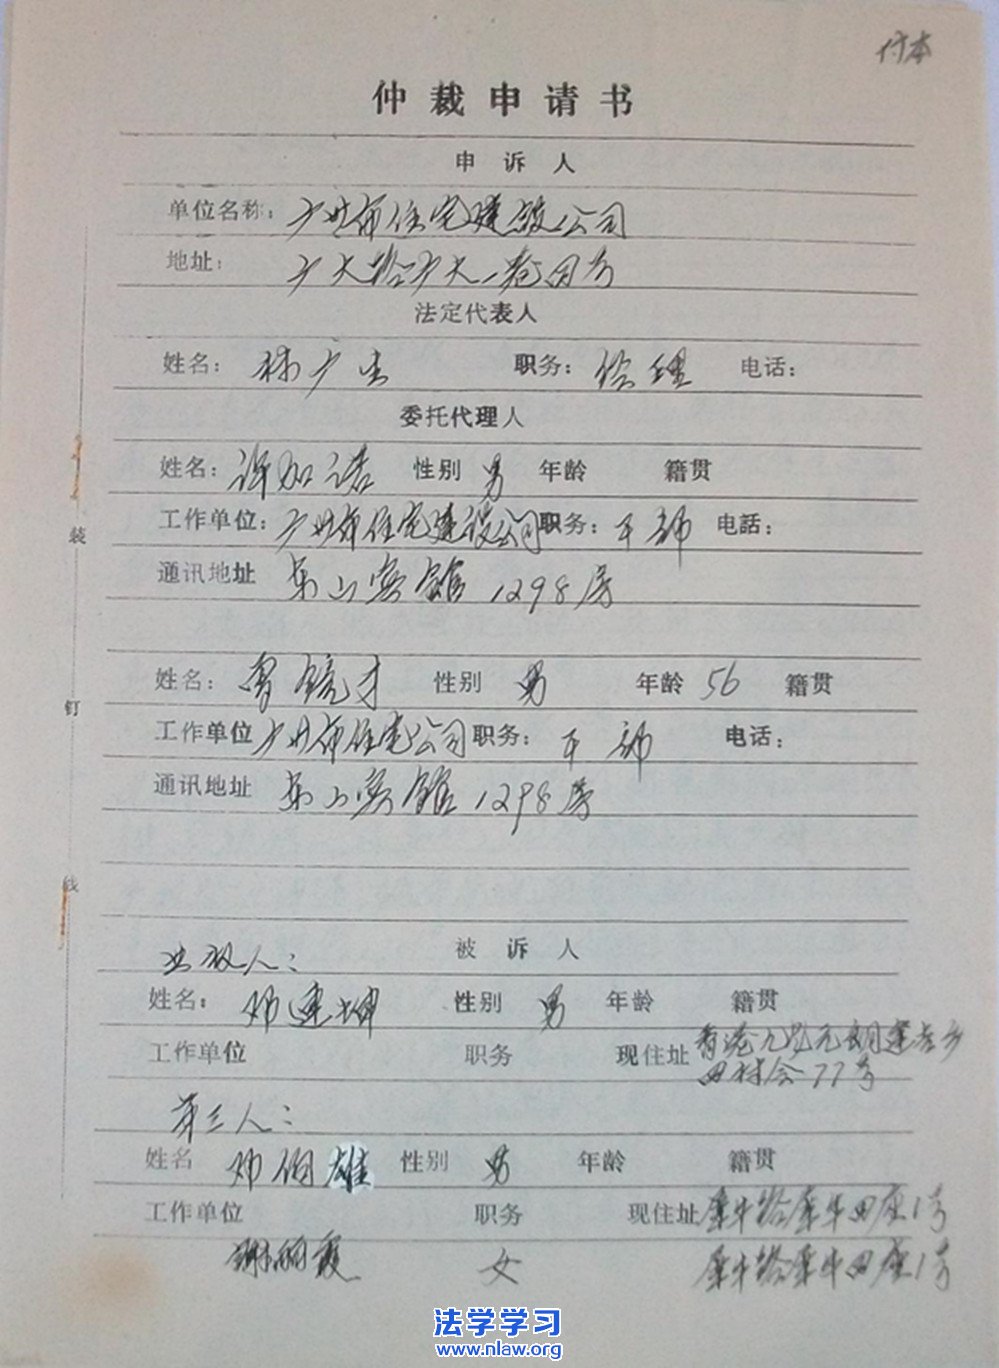 付本
仲裁申请书
申诉人
单位名称：广州市住宅建设公司
地址：广大路广大一巷四号
法定代表人
姓名：林广生 职务：经理 电话：
委托代理人
姓名：许加诺 性别 男 年龄 籍贯
工作单位：广州市住宅建设公司 职务：干部 电話：
通讯地址 东山宾馆 1298房
姓名：曾镜才 性别 男 年龄 56 籍贯
工作单位 广州市住宅公司 职务：干部 电话：
通讯地址 东山宾馆 1298房
被诉人
出租人：
姓名：邓建坤 性别 男 年龄 籍贯
工作单位 职务 现住址 香港九龙元朗
77号
第三人：
姓名 邓伯雄 性别 男 年龄 籍贯
工作单位 职务 现住址 犀牛路犀牛四座1号
谢丽霞 女 犀牛路犀牛四座1号
装
钉
线
法学学习
www.nlaw.org